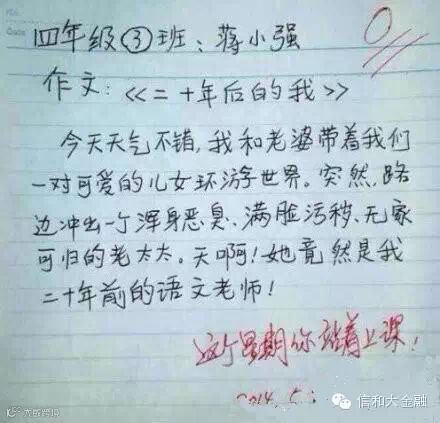 四年级③班：蒋小强
0
作文：<<二十年后的我>>
今天天气不错，我和老婆带着我们
一对可爱的儿女环游世界。突然，路
边冲出一个浑身恶臭、满脸污秽、无家
可归的老太太。天啊！她竟然是我
二十年前的语文老师！
这个星期你站着上课！
2014.5.
信和大金融
大风号